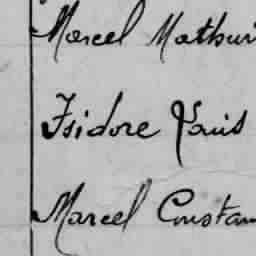 Marcel Mathuri
Isidore Louis
Marcel Constan